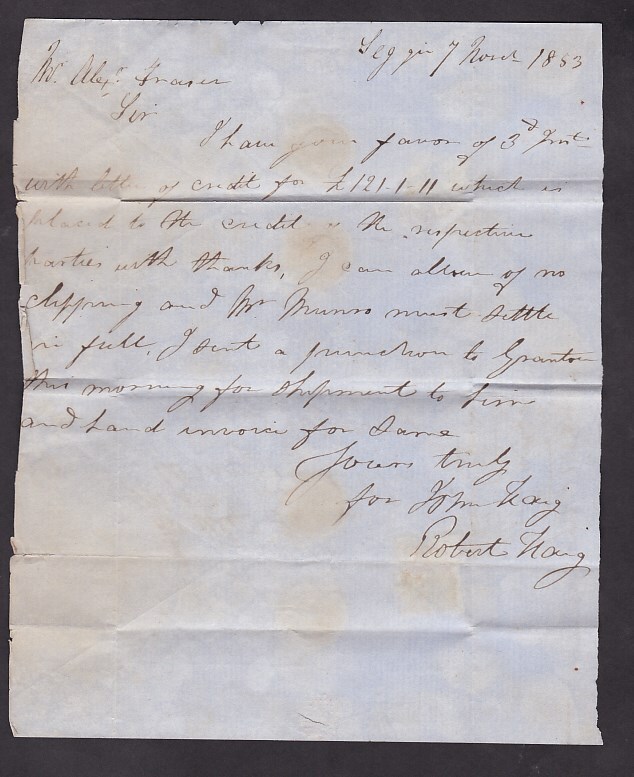 Seggie 7 Novr 1853
Mr Alexr Fraser
Sir
I have your favor of 3d Inst
with letter of credit for £121-1-11 which is
placed to the credit of the respective
parties with thanks, I can allow of no
clipping and Mr Munro must settle
in full, I sent a puncheon to Granton
this morning for shipment to him
and hand invoice for same
Yours truly
for John Haig
Robert Haig